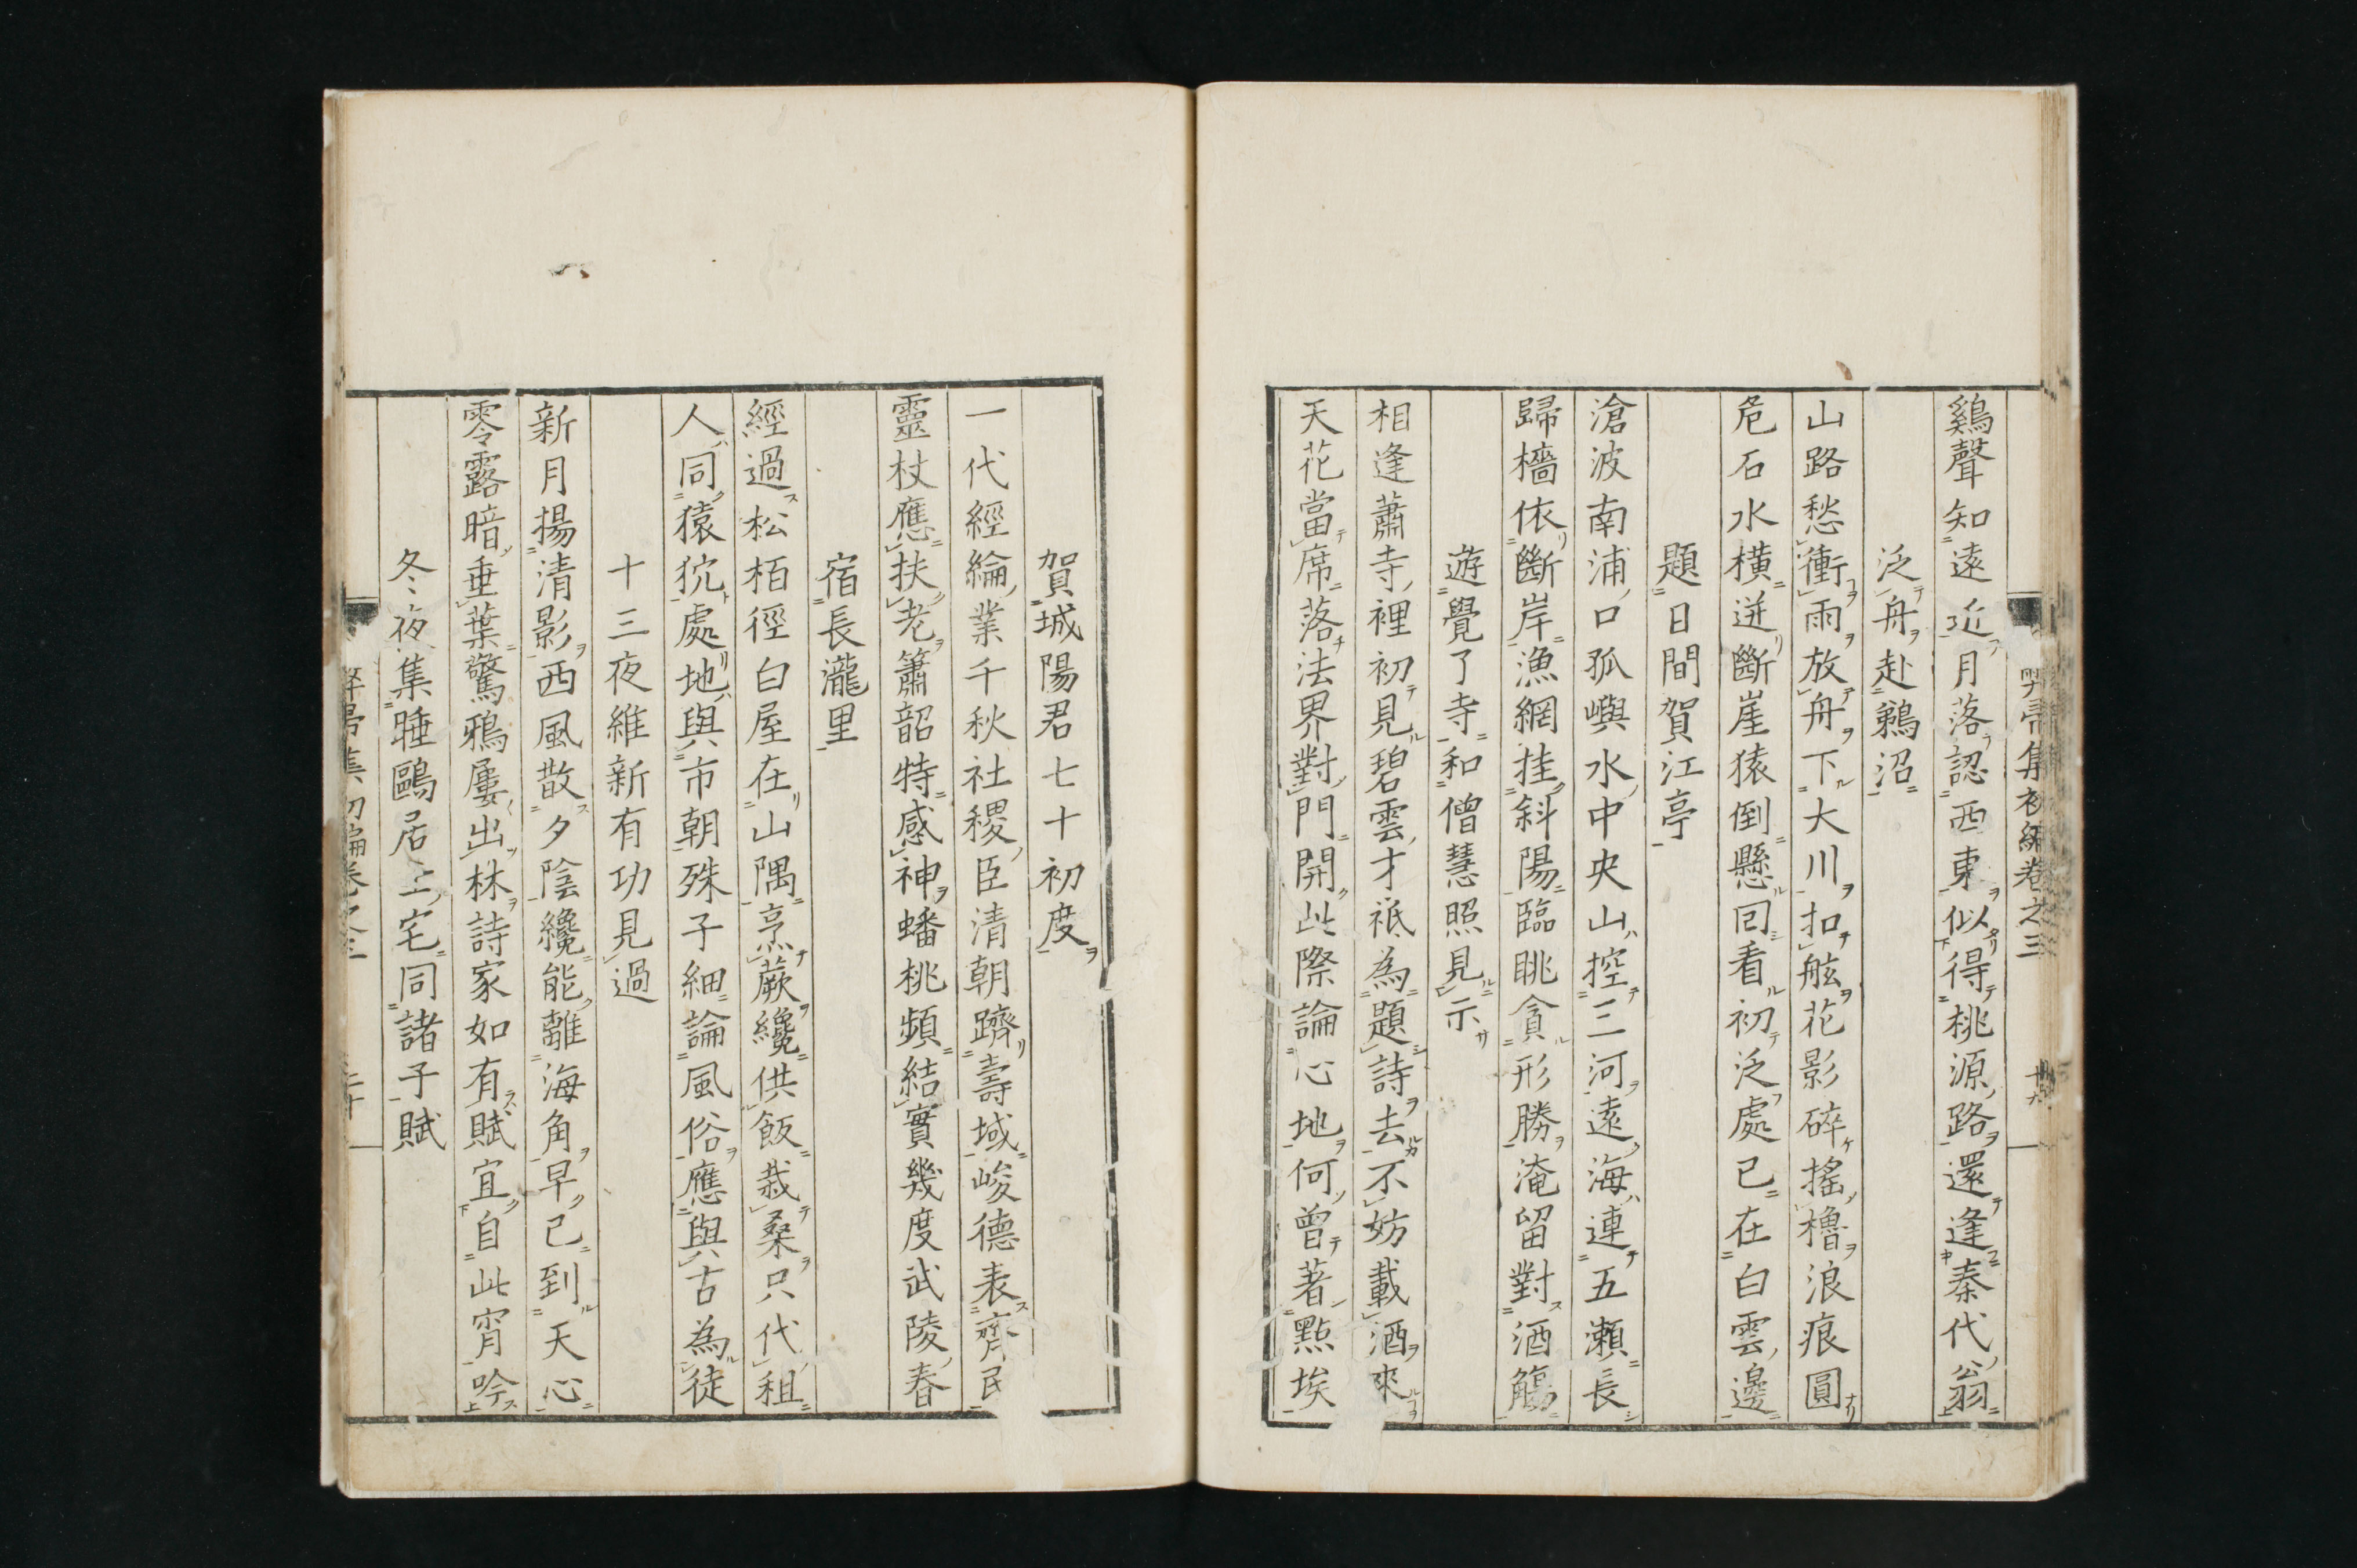 鷄聲知遠近月落認西東似得桃源路還逢秦代翁
泛舟赴鵜沼
山路愁衝雨放舟下大川扣舷花影碎搖櫓浪痕圓
危石水橫迸斷崖猿倒懸回看初泛處已在白雲邊
題日間賀江亭
滄波南浦口孤嶼水中央山控三河遠海連五瀨長
歸檣依斷岸漁網挂斜陽臨眺貪形勝淹留對酒觴
遊覺了寺和僧慧照見示
相逢蕭寺裡初見碧雲才祇為題詩去不妨載酒來
天花當席落法界對門開此際論心地何曾著點埃
賀城陽君七十初度
一代經綸業千秋社稷臣清朝躋壽域峻德表齊民
靈杖應扶老簫韶特感神蟠桃頻結實幾度武陵春
宿長瀧里
經過松栢徑白屋在山隅烹蕨纔供飯栽桑只代租
人同猿狖處地與市朝殊子細論風俗應與古為徒
十三夜維新有功見過
新月揚清影西風散夕陰纔能離海角早已到天心
零露暗垂葉驚鴉屢出林詩家如有賦宜自此宵吟
冬夜集睡鷗居士宅同諸子賦
集初編卷之三